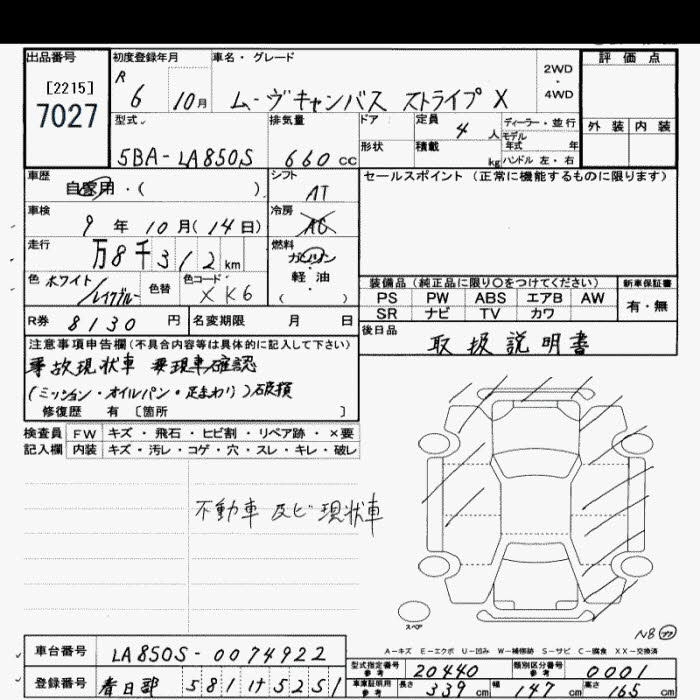 出品番号 初度登録年月 車名・グレード 2WD ・ 4WD 評価点
[2215]
7027
R 6 10月 ムーヴキャンバス ストライプ X
外装 内装
型式 排気量 ドア 定員 4 人 ディーラー・並行
モデル年式 年
5BA-LA850S 660 cc 形状 積載 kg ハンドル 左・右
車歴 自家用・( ) シフト AT セールスポイント (正常に機能するものに限ります)
車検 9 年 10 月(14日) 冷房 AC
走行 万8千312km 燃料 ガソリン・軽油 ( )
色 ホワイト/レイクブルー 色替 色コード XK6
装備品 (純正品に限り○をつけてください) 新車保証書
PS PW ABS エアB AW 有・無
SR ナビ TV カワ
R券 8130 円 名変期限 月 日
後日品 取扱説明書
注意事項申告欄(不具合内容等は具体的に記入して下さい)
事故現状車 要現車確認
(ミッション・オイルパン・足まわり)破損
修復歴 有 [箇所 ]
検査員記入欄
FW キズ・飛石・ヒビ割・リペア跡・×要
内装 キズ・汚レ・コゲ・穴・スレ・キレ・破レ
不動車 及ビ 現状車
スペア
N8
A-キズ E-エクボ U-凹み W-補修跡 S-サビ C-腐食 XX-交換済
車台番号 LA850S-0074922
型式指定番号 参考 20440 類別区分番号 参考 0001
登録番号 春日部 581 け 5251
車庫証明用 参考 長さ 339 cm 幅 147 cm 高さ 165 cm